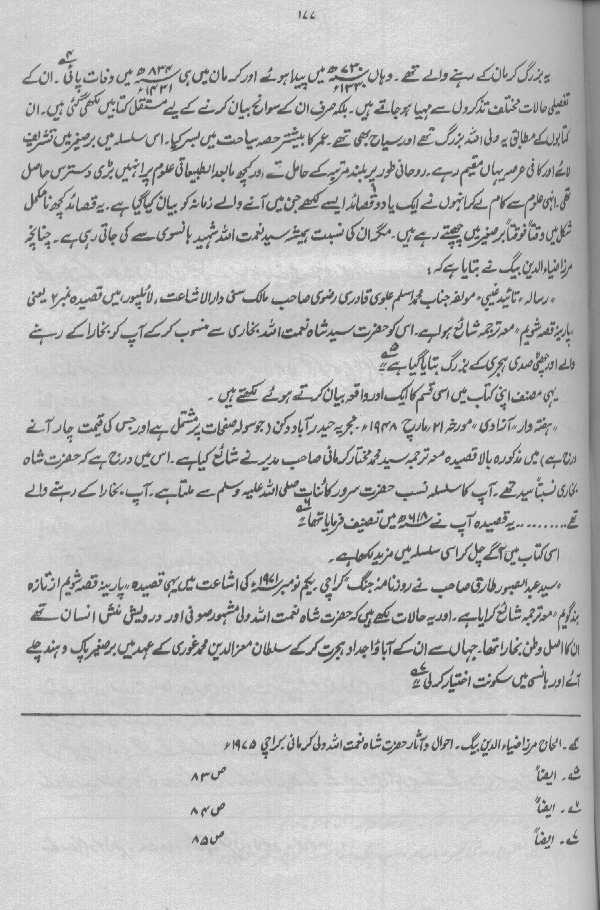 ۱۷۷
یہ بزرگ کرمان کے رہنے والے تھے۔ وہاں ۷۳۰ھ ۱۳۳۰ء میں پیدا ہوئے اور کرمان میں ہی ۸۳۴ھ ۱۴۳۱ء میں وفات پائی۴۔ ان کے
تفصیلی حالات مختلف تذکروں سے مہیا ہو جاتے ہیں۔ بلکہ صرف ان کے سوانح بیان کرنے کے لیے مستقل کتابیں لکھی گئی ہیں۔ ان
کتابوں کے مطابق یہ ولی اللہ بزرگ تھے اور سیاح بھی تھے۔ عمر کا بیشتر حصہ سیاحت میں بسر کیا۔ اس سلسلہ میں برصغیر میں تشریف
لائے اور کافی عرصہ یہاں مقیم رہے۔ روحانی طور پر بلند مرتبہ کے حامل تھے اور کچھ مابعد الطبیعاتی علوم پر انہیں بڑی دسترس حاصل
تھی۔ انہی علوم سے کام لے کر انہوں نے ایک یا دو قصائد ایسے لکھے جن میں آنے والے زمانہ کو بیان کیا گیا ہے۔ یہ قصائد کچھ نامکمل
شکل میں وقتاً فوقتاً برصغیر میں چھپتے رہے ہیں۔ مگر ان کی نسبت ہمیشہ سید نعمت اللہ شہید ہانسوی سے کی جاتی رہی ہے۔ چنانچہ
مرزا ضیاء الدین بیگ نے بتایا ہے کہ :
"رسالہ "تائید غیبی" مولفہ جناب محمد اسلم علوی قادری رضوی صاحب مالک سنی دارالاشاعت، لائلپور، میں قصیدہ نمبر ۲ یعنی
"پارینہ قصہ شویم" معہ ترجمہ شائع ہوا ہے۔ اس کو حضرت سید شاہ نعمت اللہ بخاری سے منسوب کر کے آپ کو بخارا کے رہنے
والے اور چھٹی صدی ہجری کے بزرگ بتایا گیا ہے"۵
یہی مصنف اپنی کتاب میں اسی قسم کا ایک اور واقعہ بیان کرتے ہوئے لکھتے ہیں۔
"ہفتہ وار "آزادی" مورخہ ۲۱ مارچ ۱۹۴۸ء۔ مجریہ حیدر آباد دکن (جو سولہ صفحات پر مشتمل ہے اور جس کی قیمت چار آنے
درج ہے) میں مذکورہ بالا قصیدہ معہ ترجمہ سید محمد مختار کرمانی صاحب مدیر نے شائع کیا ہے۔ اس میں درج ہے کہ حضرت شاہ
بخاری نسباً سید تھے۔ آپ کا سلسلہ نسب حضرت سرور کائنات صلی اللہ علیہ وسلم سے ملتا ہے۔ آپ بخارا کے رہنے والے
تھے .......... یہ قصیدہ آپ نے ۶۱۸ھ میں تصنیف فرمایا تھا"۶
اسی کتاب میں آگے چل کر اسی سلسلہ میں مزید لکھا ہے۔
"سید عبدالصبور طارق صاحب نے روزنامہ "جنگ" کراچی یکم نومبر ۱۹۷۱ء کی اشاعت میں یہی قصیدہ "پارینہ قصہ شویم از تازہ
ہند گویم" معہ ترجمہ شائع کرایا ہے۔ اور یہ حالات لکھے ہیں کہ حضرت شاہ نعمت اللہ ولی مشہور صوفی اور درویش منش انسان تھے
ان کا اصل وطن بخارا تھا۔ جہاں سے ان کے آباؤ اجداد ہجرت کر کے سلطان معز الدین محمد غوری کے عہد میں برصغیر پاک و ہند چلے
آئے اور ہانسی میں سکونت اختیار کرلی"۷
۴۔ الحاج مرزا ضیاء الدین بیگ۔ احوال و آثار حضرت شاہ نعمت اللہ ولی کرمانی کراچی ۱۹۷۵ء
۵۔ ایضاً ص ۸۳
۶۔ ایضاً ص ۸۴
۷۔ ایضاً ص ۸۵